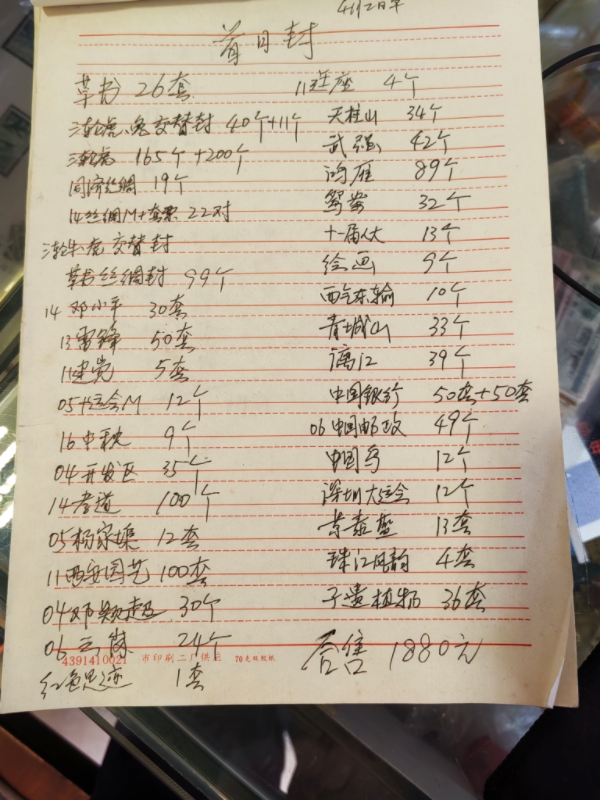 首日封
草书 26套
渤海虎、兔交替封 40个+11个
165个+200个
同济丝绸 19个
14丝绸M+套票 22对
交替封
草书丝绸封 99个
14 邓小平 30套
13雷锋 50套
11建党 5套
05十运会M 12个
16中秋 9个
04开发区 35个
14孝道 100个
05杨家埠 12套
11西安园艺 100套
04邓颖超 30个
06云冈 24个
4391410021 市印刷二厂供应 70克双胶纸
红色足迹 1套
4个
天柱山 34个
武强 42个
鸿雁 89个
鸳鸯 32个
十一届人大 13个
绘画 9个
西气东输 10个
青城山 33个
漓江 39个
中国银行 50套+50套
06中国邮政 49个
中国鸟 12个
深圳大运会 12个
景泰蓝 13套
珠江风韵 4套
孑遗植物 36套
合售 1880元